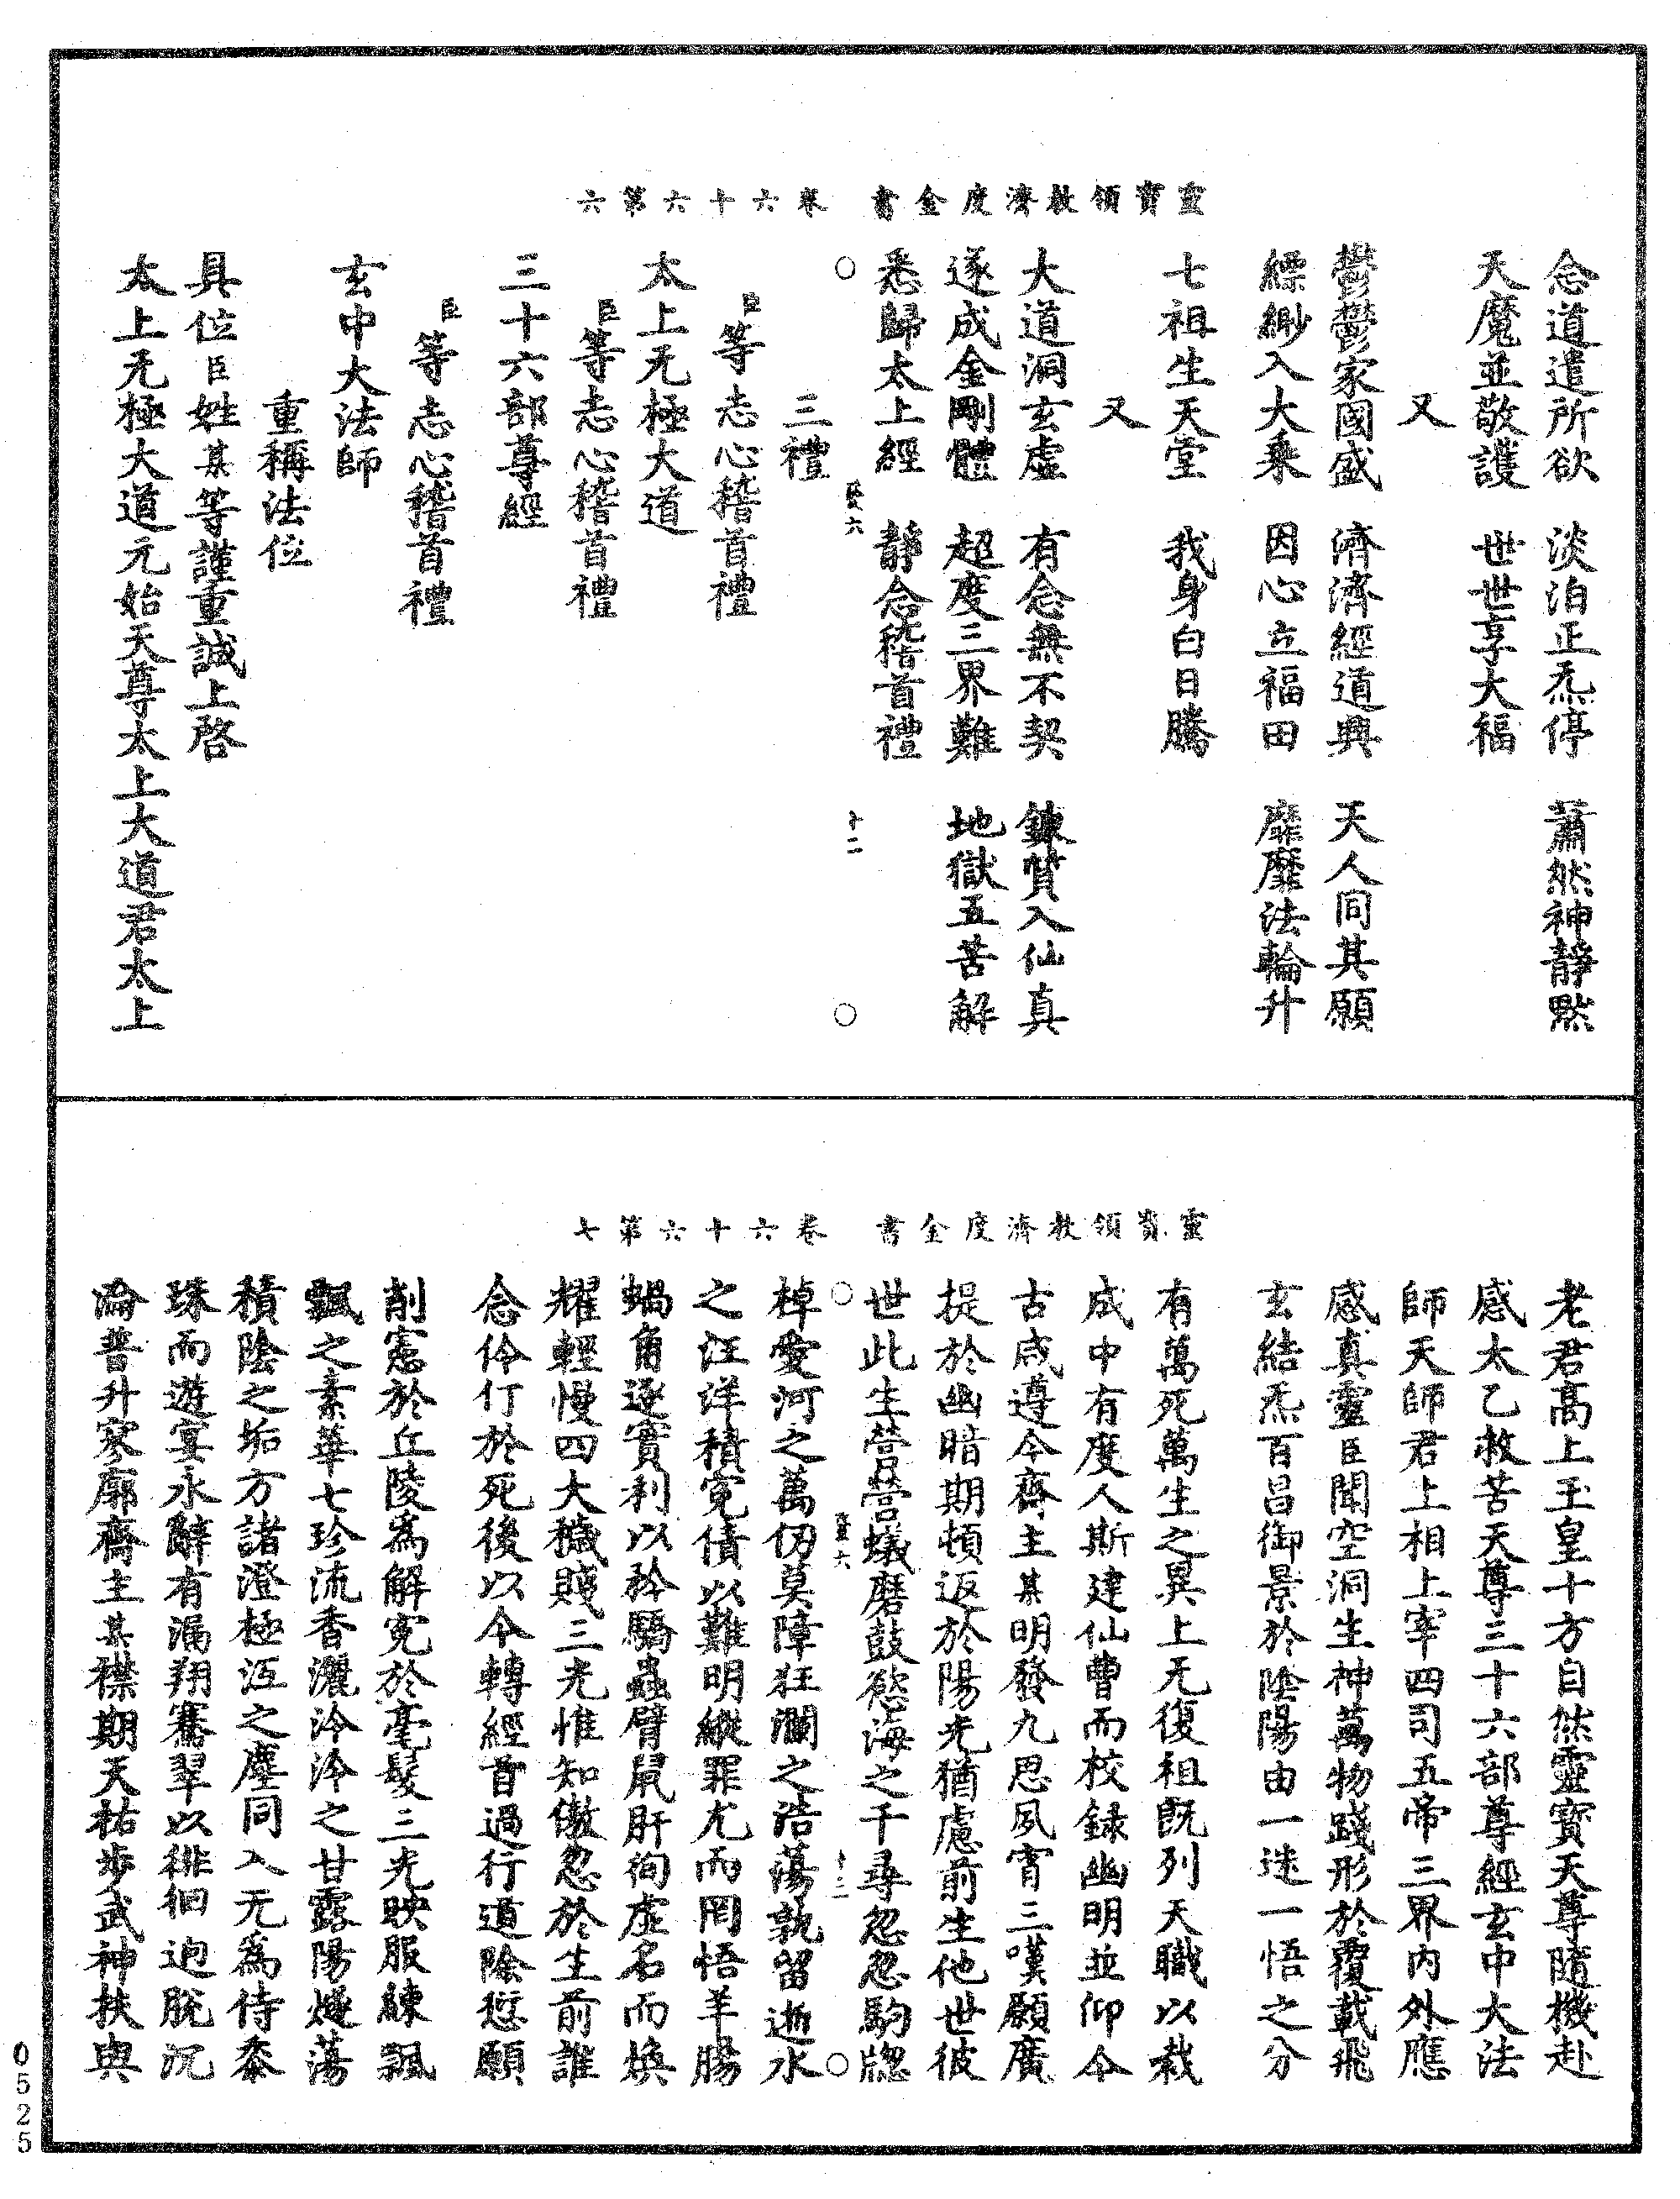 靈寶領教濟度金書　卷六十六　第六
念道遣所欲　淡泊正炁停　蕭然神靜默
天魔並敬護　世世享大福
又
鬱鬱家國盛　濟濟經道興　天人同其願
縹緲入大乘　因心立福田　靡靡法輪升
七祖生天堂　我身白日騰
又
大道洞玄虛　有念無不契　鍊質入仙真
遂成金剛體　超度三界難　地獄五苦解
悉歸太上經　靜念稽首禮
十二
三禮
臣等志心稽首禮
太上无極大道
臣等志心稽首禮
三十六部尊經
臣等志心稽首禮
玄中大法師
重稱法位
具位臣姓某等謹重誠上啓
太上无極大道元始天尊太上大道君太上
靈寶領教濟度金書　卷六十六　第七
老君高上玉皇十方自然靈寶天尊隨機赴
感太乙救苦天尊三十六部尊經玄中大法
師天師君上相上宰四司五帝三界內外應
感真靈臣聞空洞生神萬物踐形於覆載飛
玄結炁百昌御景於陰陽由一迷一悟之分
有萬死萬生之異上无復祖既列天職以裁
成中有度人斯建仙曹而校録幽明並仰今
古咸遵今齋主某明發九思夙宵三嘆願廣
提於幽暗期頓返於陽光猶慮前生他世彼
世此生營營蟻磨鼓慾海之千尋忽忽駒隙
十三
棹愛河之萬仞莫障狂瀾之浩蕩孰留逝水
之汪洋積寃債以難明縱罪尤而罔悟羊腸
蝸角逐實利以矜驕蟲臂鼠肝徇虛名而煥
耀輕慢四大穢賤三光惟知傲忽於生前誰
念伶仃於死後以今轉經首過行道除愆願
削憲於丘陵爲解寃於毫髮三光映服練飄
飄之素華七珍流香灑泠泠之甘露陽燧蕩
積陰之垢方諸澄極沍之塵同入无爲侍黍
珠而遊宴永辭有漏翔鶱翠以徘徊逈脫沉
淪普升寥廓齋主某襟期天祐步武神扶與
0525